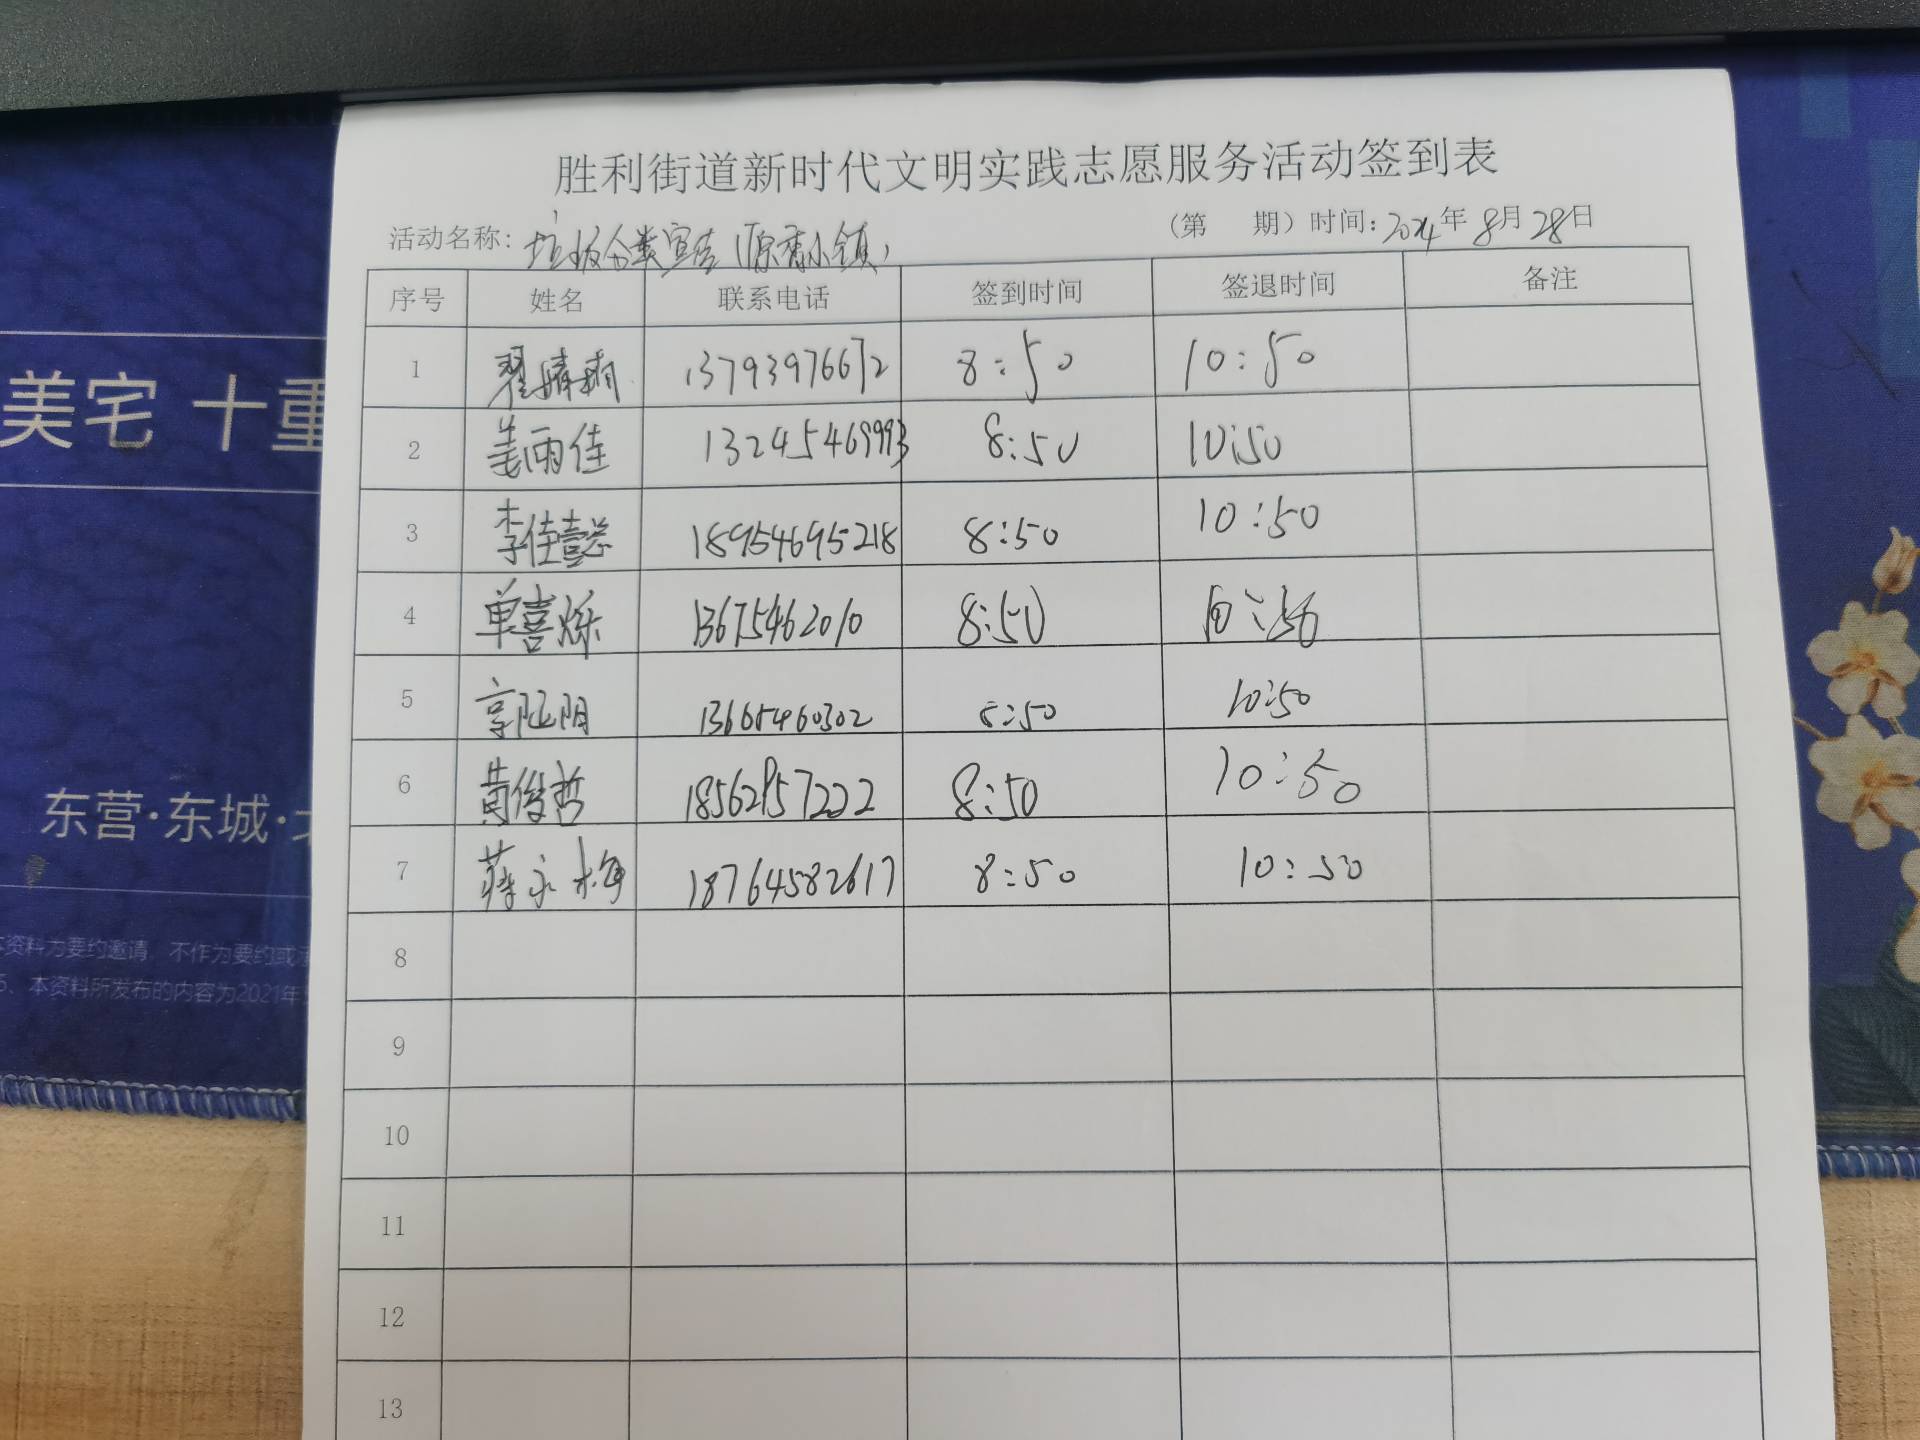 胜利街道新时代文明实践志愿服务活动签到表
活动名称：垃圾分类宣传（原香小镇） （第 期）时间：2024年8月28日
序号 姓名 联系电话 签到时间 签退时间 备注
1 翟婧楠 13793976672 8:50 10:50
2 姜雨佳 13245469993 8:50 10:50
3 李佳懿 18954695218 8:50 10:50
4 单喜烁 13675462010 8:50 10:50
5 13665460302 8:50 10:50
6 黄俊哲 18562957222 8:50 10:50
7 蒋永梅 18764582617 8:50 10:50
8
9
10
11
12
13
美宅 十重
东营·东城·
本资料为要约邀请，不作为要约或
5、本资料所发布的内容为2021年